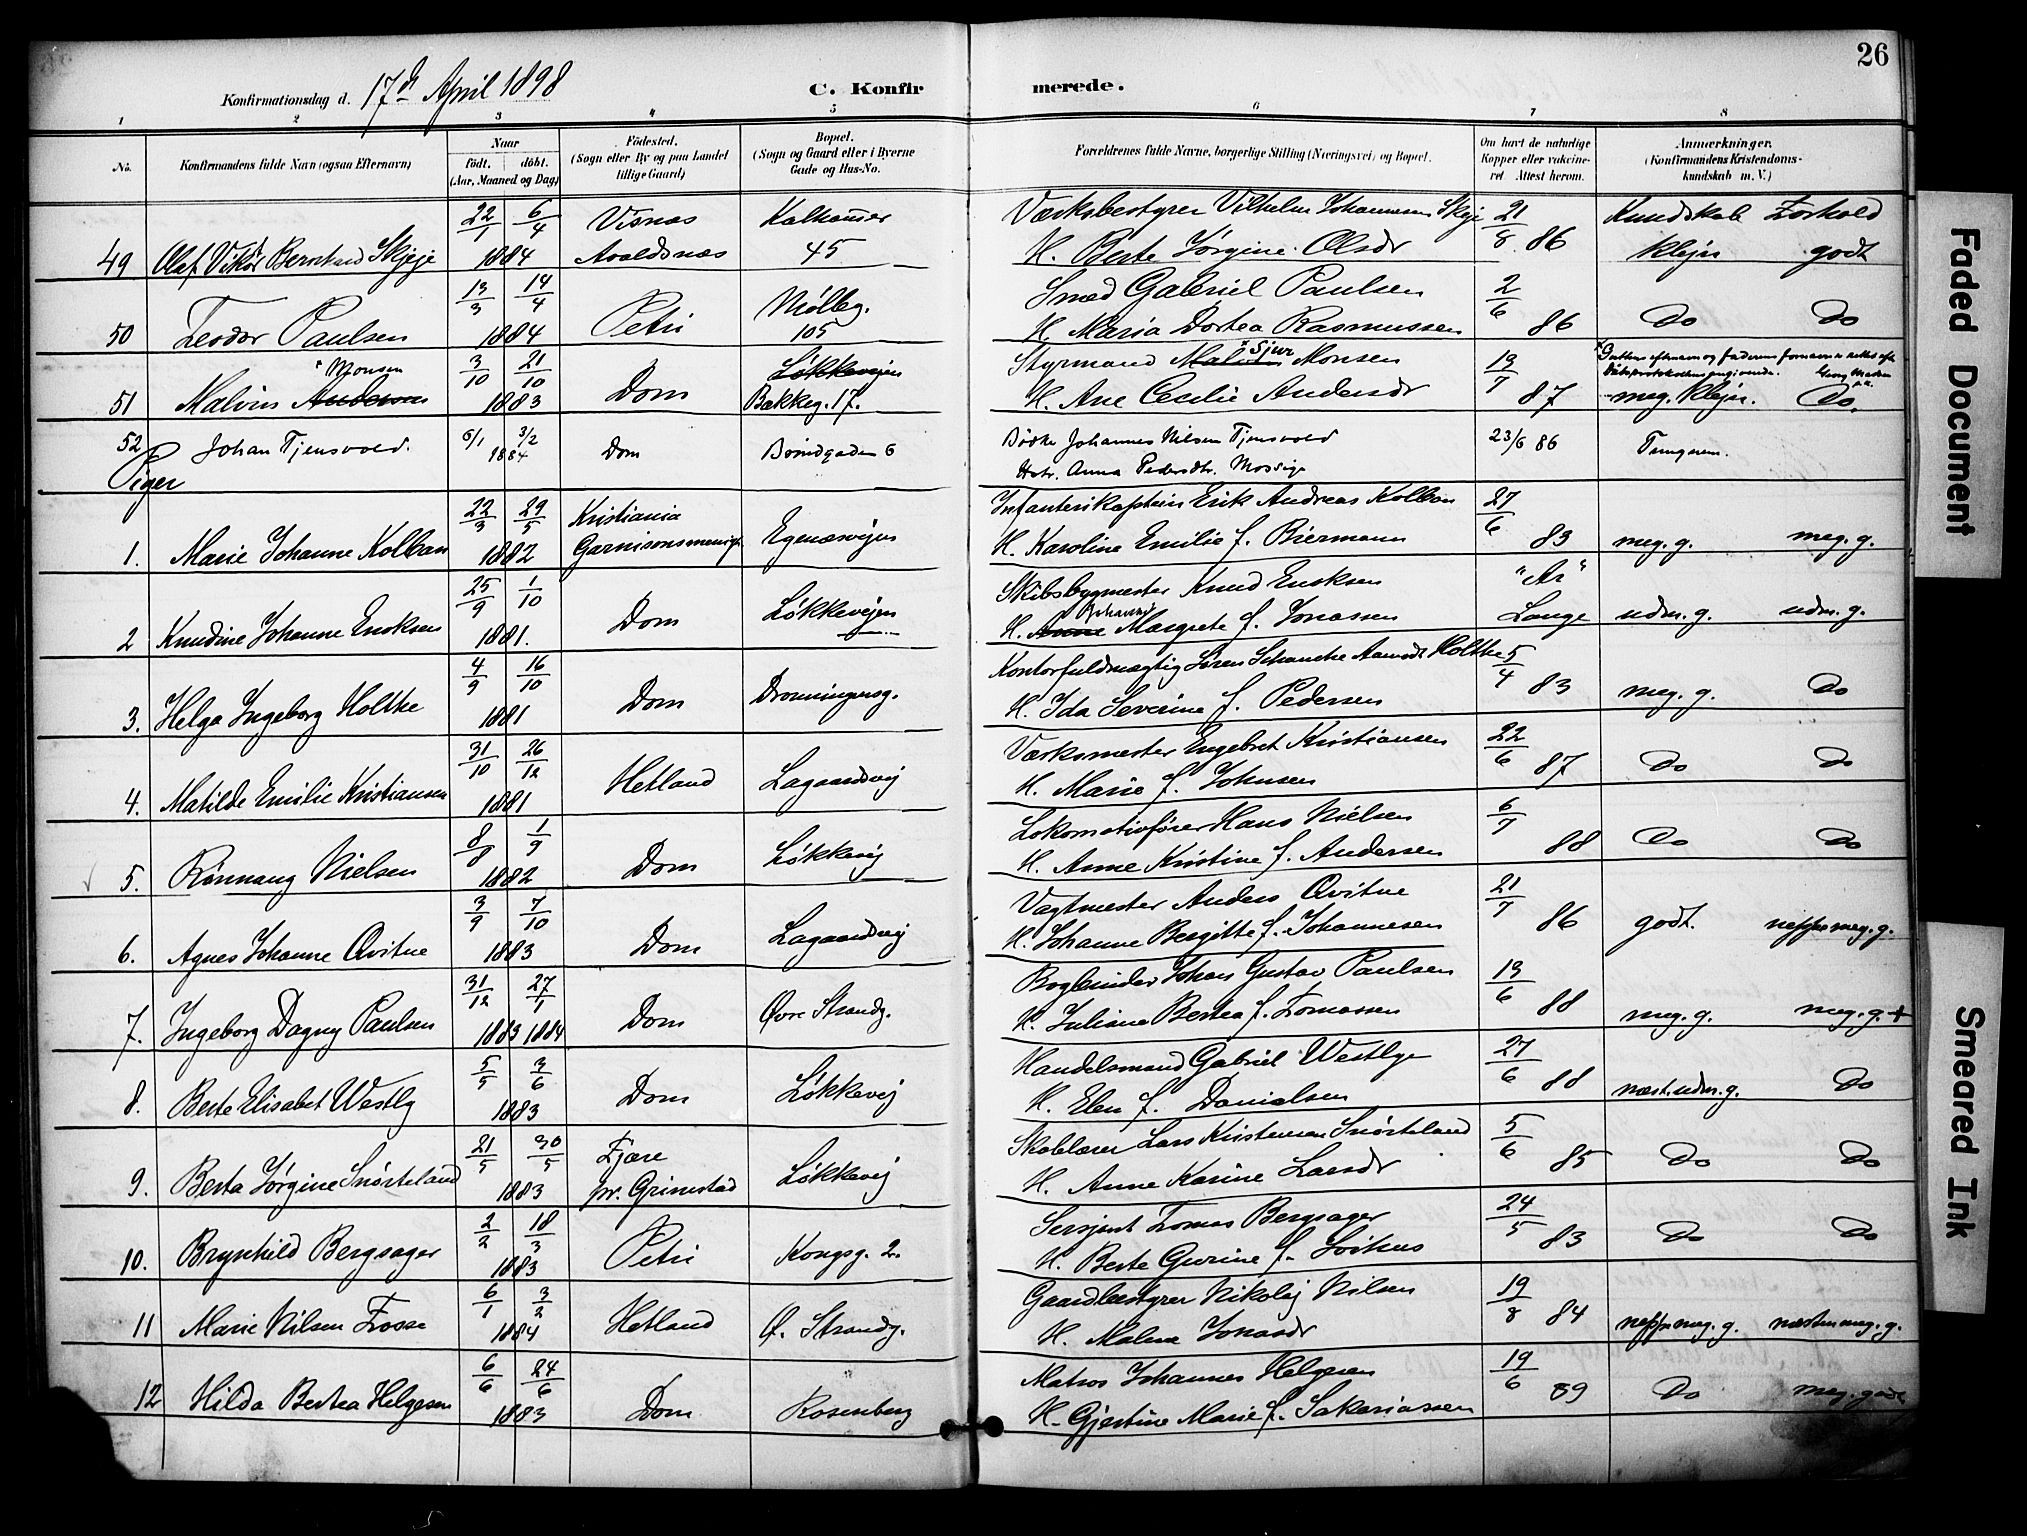 26
Konfirmationsdag d. 17de April 1898
C. Konfirmerede.
1 2 3 4 5 6 7 8
No. Konfirmandens fulde Navn (ogsaa Efternavn) Naar født, døbt. (Aar, Maaned og Dag) Fødested. (Sogn eller By og paa Landet tillige Gaard) Bopæl. (Sogn og Gaard eller i Byerne Gade og Hus-No. Forældrenes fulde Navne, borgerlige Stilling (Næringsvei) og Bopæl. Om havt de naturlige Kopper eller vakcineret. Attest herom. Anmærkninger. (Konfirmandens Kristendomskundskab m. V.)
22/1 6/4 Visnæs Kalhammer Værksbestyrer Vilhelm Johannesen Skeje 21/8 86 Kundskab Forhold
49 Olaf Viktor Bernhard Skjeje 1884 Avaldsnæs 45 H. Berte Jørgine Olsdr klejn godt
13/3 14/4 Petri Mølleg. Smed Gabriel Paulsen 2/6 86
50 Teodor Paulsen 1884 105 H. Maria Dortea Rasmussen Do Do
" Monsen 3/10 21/10 Løkkevejen Styrmand Malvin "Sjur Monsen 19/7 87
51 Malvin Andersen 1883 Dom Bakkeg. 17. H. Ane Cecilie Andersdr meg. klejn. Do.
52 Johan Tjensvold. 6/1 3/2 1884 Dom Brøndgaden 6 Bødker Johannes Nilsen Tjensvold 23/6 86
Hstr. Anna Pedersdtr. Mossige
Piger
22/3 29/5 Kristiania Infanterikaptein Erik Andreas Kolban 27/6 83
1. Marie Johanne Kolban 1882 Garnisonsmenigh. Egenæsvejen H. Karoline Emilie f. Biermann meg. g. meg. g.
25/9 1/10 Dom Løkkevejen Skibsbygmester Knud Enoksen "Ar"
2 Knudine Johanne Enoksen 1881. H. Anne Johanne Margrete f. Jonassen Lange udm. g. udm. g.
4/9 16/10 Dom Dronningensg. Kontorfuldmægtig Søren Schancke Aamodt Holtke 5/4 83
3. Helga Ingeborg Holtke 1881 H. Ida Severine f. Pedersen meg. g. Do
31/10 26/12 Hetland Lagaardsvej Værksmester Engebret Kristiansen 22/6 87
4. Matilde Emilie Kristiansen 1881 H. Marie f. Johnsen Do Do
8/8 1/9 Dom Løkkevej Lokomotivfører Hans Nielsen 6/7 88
5. Rønnaug Nielsen 1882 H. Anne Kristine f. Andersen Do Do
3/9 7/10 Dom Lagaardsvej Vagtmester Anders Qvitne 21/7 86
6. Agnes Johanne Qvitne 1883 H. Johanne Bergitte f. Johannesen godt. neppe meg. g.
31/12 27/1 Dom Øvre Strandg. Bogbinder Johan Gustav Paulsen 19/6 88
7. Ingeborg Dagny Paulsen 1883 1884 H. Juliane Bertea f. Tomassen meg. g. meg. g. +
5/5 3/6 Dom Løkkevej Handelsmand Gabriel Westlye 27/6 88
8. Berte Elisabet Westly 1883 H. Elen f. Danielsen næst. udm. g. Do
21/5 30/5 Fjære Løkkevej Skolelærer Lars Kristensen Snørteland 5/6 85
9. Berta Jørgine Snørteland 1883 pr. Grimstad H. Anne Karine Larsdr Do Do
2/2 18/3 Petri Kongsg. 2. Sersjant Tomas Bergsager 24/5 83
10. Brynhild Bergsager 1883 H. Berte Gurine f. Lothus Do Do
6/1 3/2 Hetland Ø. Strandg. Gaardbestyrer Nikolaj Nilsen 19/8 84
11 Marie Nilsen Fosse 1884 H. Malene Jonasdr neppe meg. g. næsten meg. g.
6/6 24/6 Dom Rosenberg Matros Johannes Helgesen 19/6 89
12 Hilda Bertea Helgesen 1883 H. Gjertine Marie f. Sakariassen Do meg. godt
Faded Document
Smeared Ink